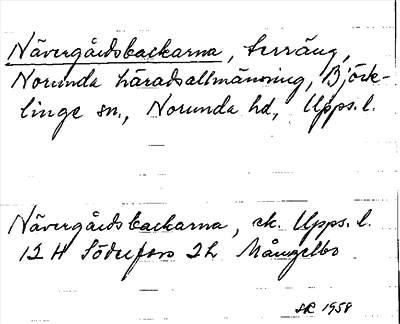 Nävergårdsbackarna, terräng,
Norunda häradsallmänning, Björk-
linge sn., Norunda hd, Upps. l.
Nävergårdsbackarna, ek. Upps. l.
12 H Söderfors 2h Månkelbo
SR 1958